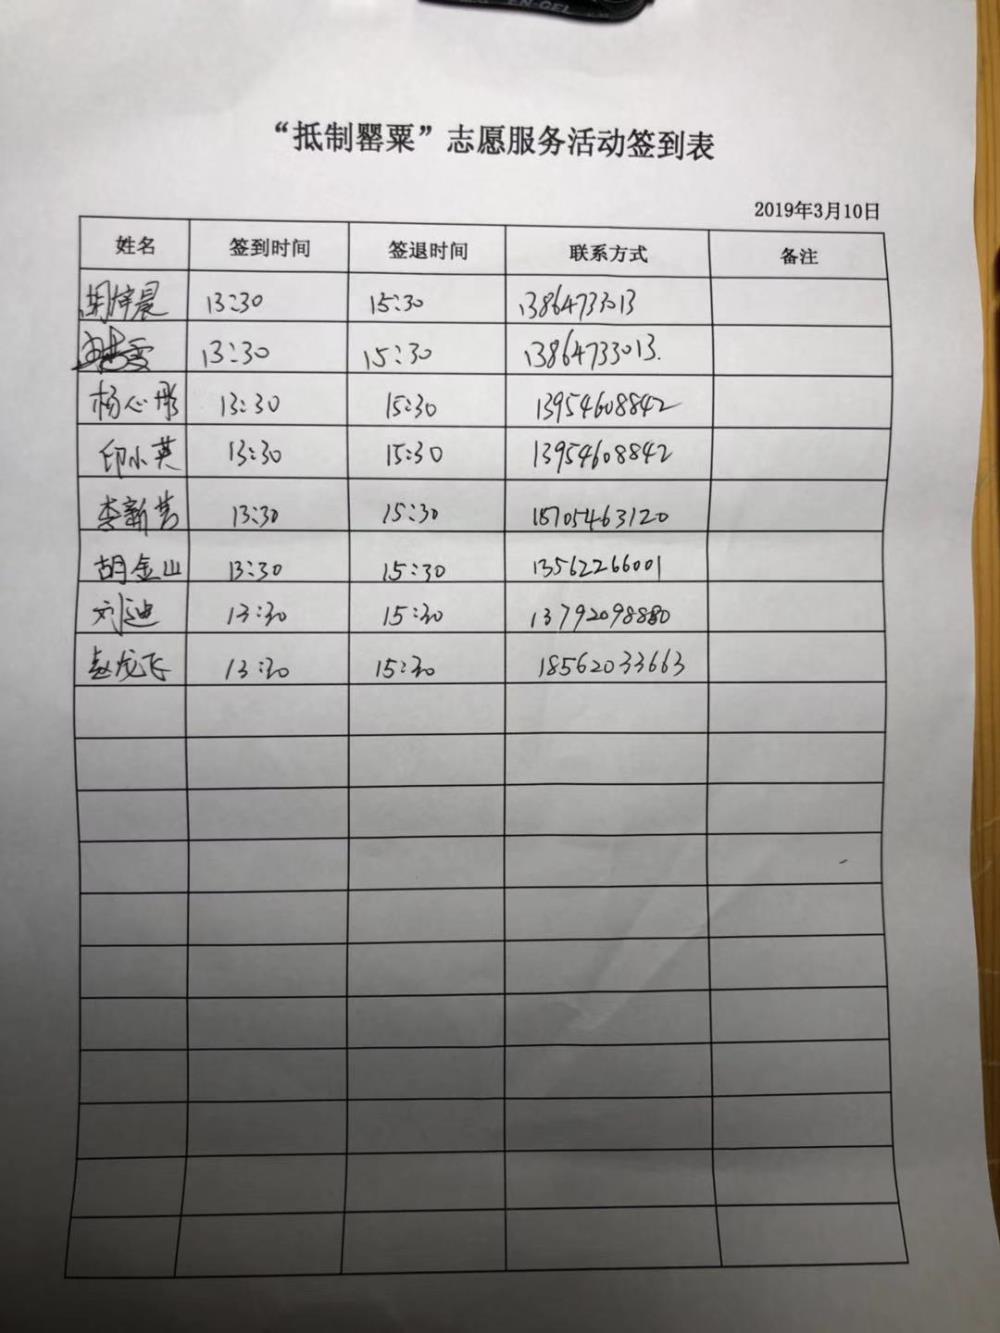 EN-GEL
“抵制罂粟”志愿服务活动签到表
2019年3月10日
姓名 签到时间 签退时间 联系方式 备注
周梓晨 13:30 15:30 13864733013
13:30 15:30 13864733013.
杨心彤 13:30 15:30 13954608842
印小英 13:30 15:30 13954608842
李新芳 13:30 15:30 18705463120
胡金山 13:30 15:30 13562266001
刘迪 13:30 15:30 13792098880
赵龙飞 13:30 15:30 18562033663